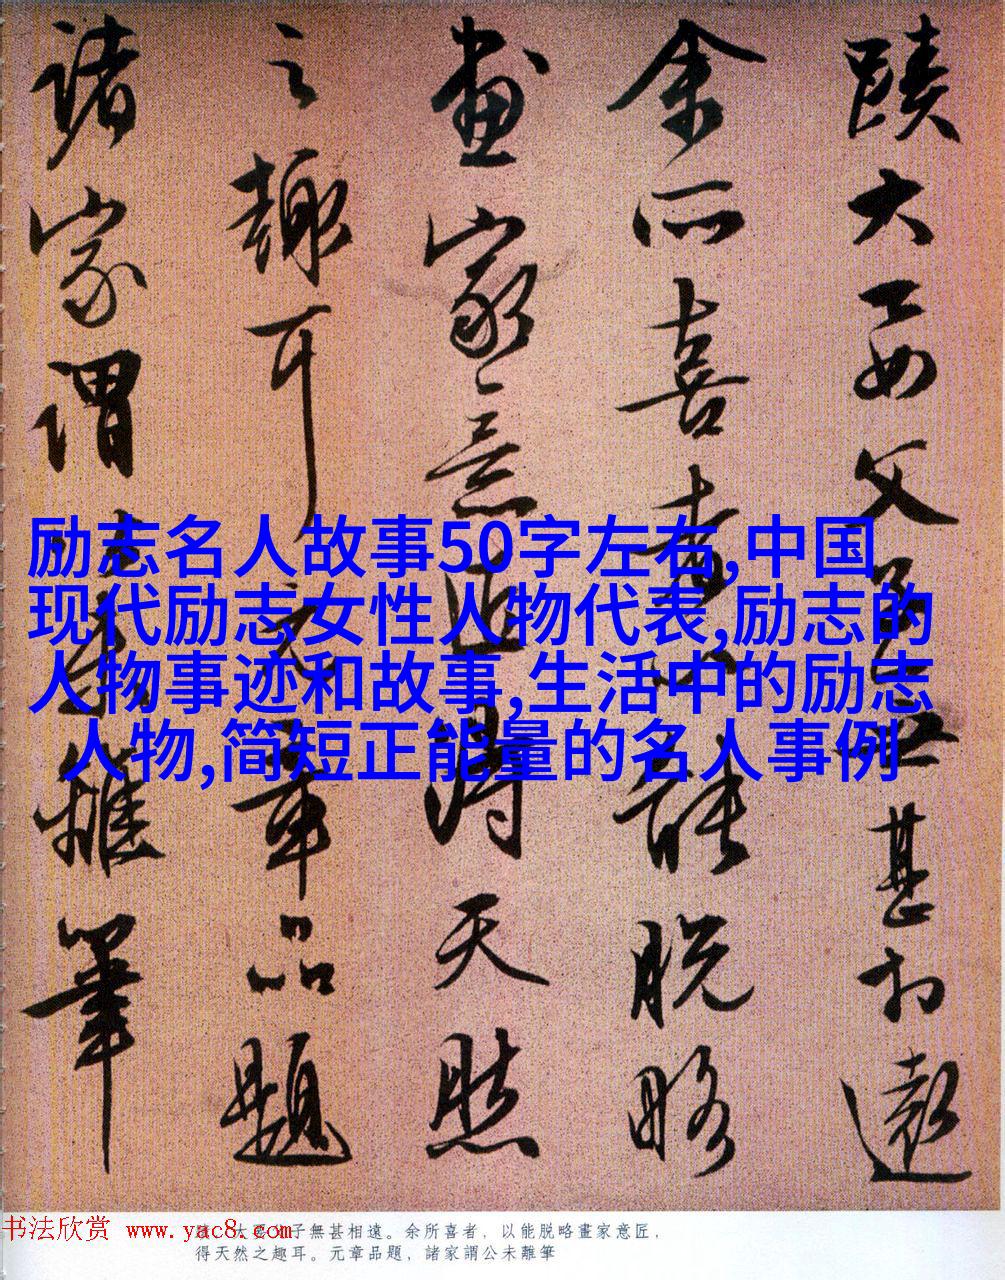 蹟大要父子無甚相遠
余所喜者以能脱略
畫家意匠得天然
之趣耳元章品題
諸家謂公未離筆
励志名人故事50字左右,中国
现代励志女性人物代表,励志的
人物事迹和故事,生活中的励志
人物,简短正能量的名人事例
书法欣赏 www.yac8.com
大要父子無甚相遠。余所喜者，以能脱略畫家意匠，
得天然之趣耳。元章品題，諸家謂公未離筆